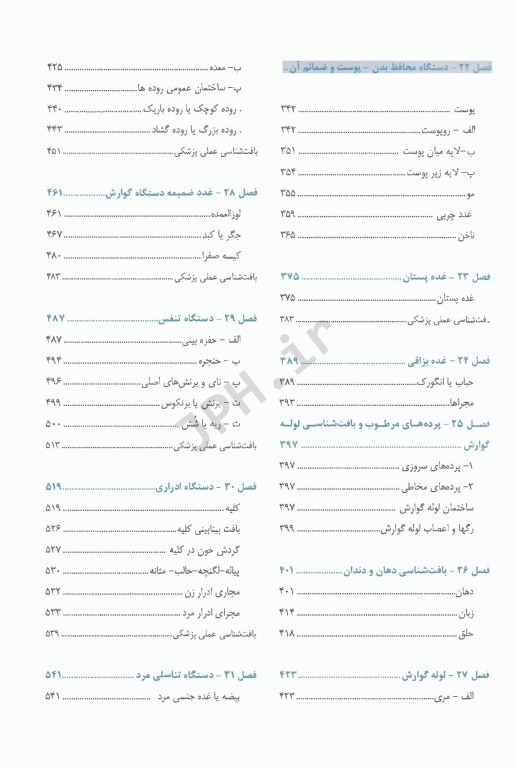 فصل ۲۲ - دستگاه محافظ بدن - پوست و ضمائم آن..
پوست ۳۴۲
الف - روپوست ۳۴۲
ب-لایه میان پوست ۳۵۱
پ- لایه زیر پوست ۳۵۴
مو ۳۵۵
غدد چربی ۳۵۹
ناخن ۳۶۵
فصل ۲۳ - غده پستان ۳۷۵
غده پستان ۳۷۵
بافت‌شناسی عملی پزشکی ۳۸۳
فصل ۲۴ - غده بزاقی ۳۸۹
حباب یا انگورک ۳۸۹
مجراها ۳۹۳
فصل ۲۵ - پرده‌های مرطوب و بافت‌شناسی لوله
گوارش ۳۹۷
۱- پرده‌های سروزی ۳۹۷
۲- پرده‌های مخاطی ۳۹۷
ساختمان لوله گوارش ۳۹۷
رگها و اعصاب لوله گوارش ۳۹۹
فصل ۲۶ - بافت‌شناسی دهان و دندان ۴۰۱
دهان ۴۰۱
زبان ۴۱۴
حلق ۴۱۸
فصل ۲۷ - لوله گوارش ۴۲۳
الف - مری ۴۲۳
ب- معده ۴۲۵
پ- ساختمان عمومی روده ها ۴۳۴
. روده کوچک یا روده باریک ۴۴۰
. روده بزرگ یا روده گشاد ۴۴۳
بافت‌شناسی عملی پزشکی ۴۵۱
فصل ۲۸ - غدد ضمیمه دستگاه گوارش ۴۶۱
لوزالمعده ۴۶۱
جگر یا کبد ۴۶۷
کیسه صفرا ۴۸۰
بافت‌شناسی عملی پزشکی ۴۸۳
فصل ۲۹ - دستگاه تنفس ۴۸۷
الف - حفره بینی ۴۸۷
ب - حنجره ۴۹۴
پ - نای و برنش‌های اصلی ۴۹۶
ت - برنش یا برنکوس ۴۹۹
ث - ریه یا شش ۵۰۰
بافت‌شناسی عملی پزشکی ۵۱۳
فصل ۳۰ - دستگاه ادراری ۵۱۹
کلیه ۵۱۹
بافت بینابینی کلیه ۵۲۶
گردش خون در کلیه ۵۲۷
پیاله-لگنچه-حالب- مثانه ۵۳۰
مجاری ادرار زن ۵۳۲
مجرای ادرار مرد ۵۳۳
بافت‌شناسی عملی پزشکی ۵۳۹
فصل ۳۱ - دستگاه تناسلی مرد ۵۴۱
بیضه یا غده جنسی مرد ۵۴۱
JPH.ir